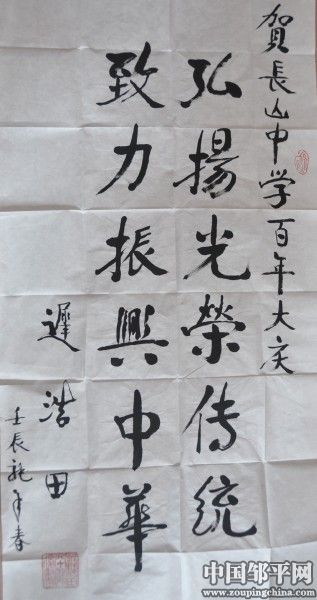 賀長山中学百年大庆
弘揚光榮傳统
致力振興中華
遲浩田
壬辰龍年春
中国邹平网
www.zoupingchina.com